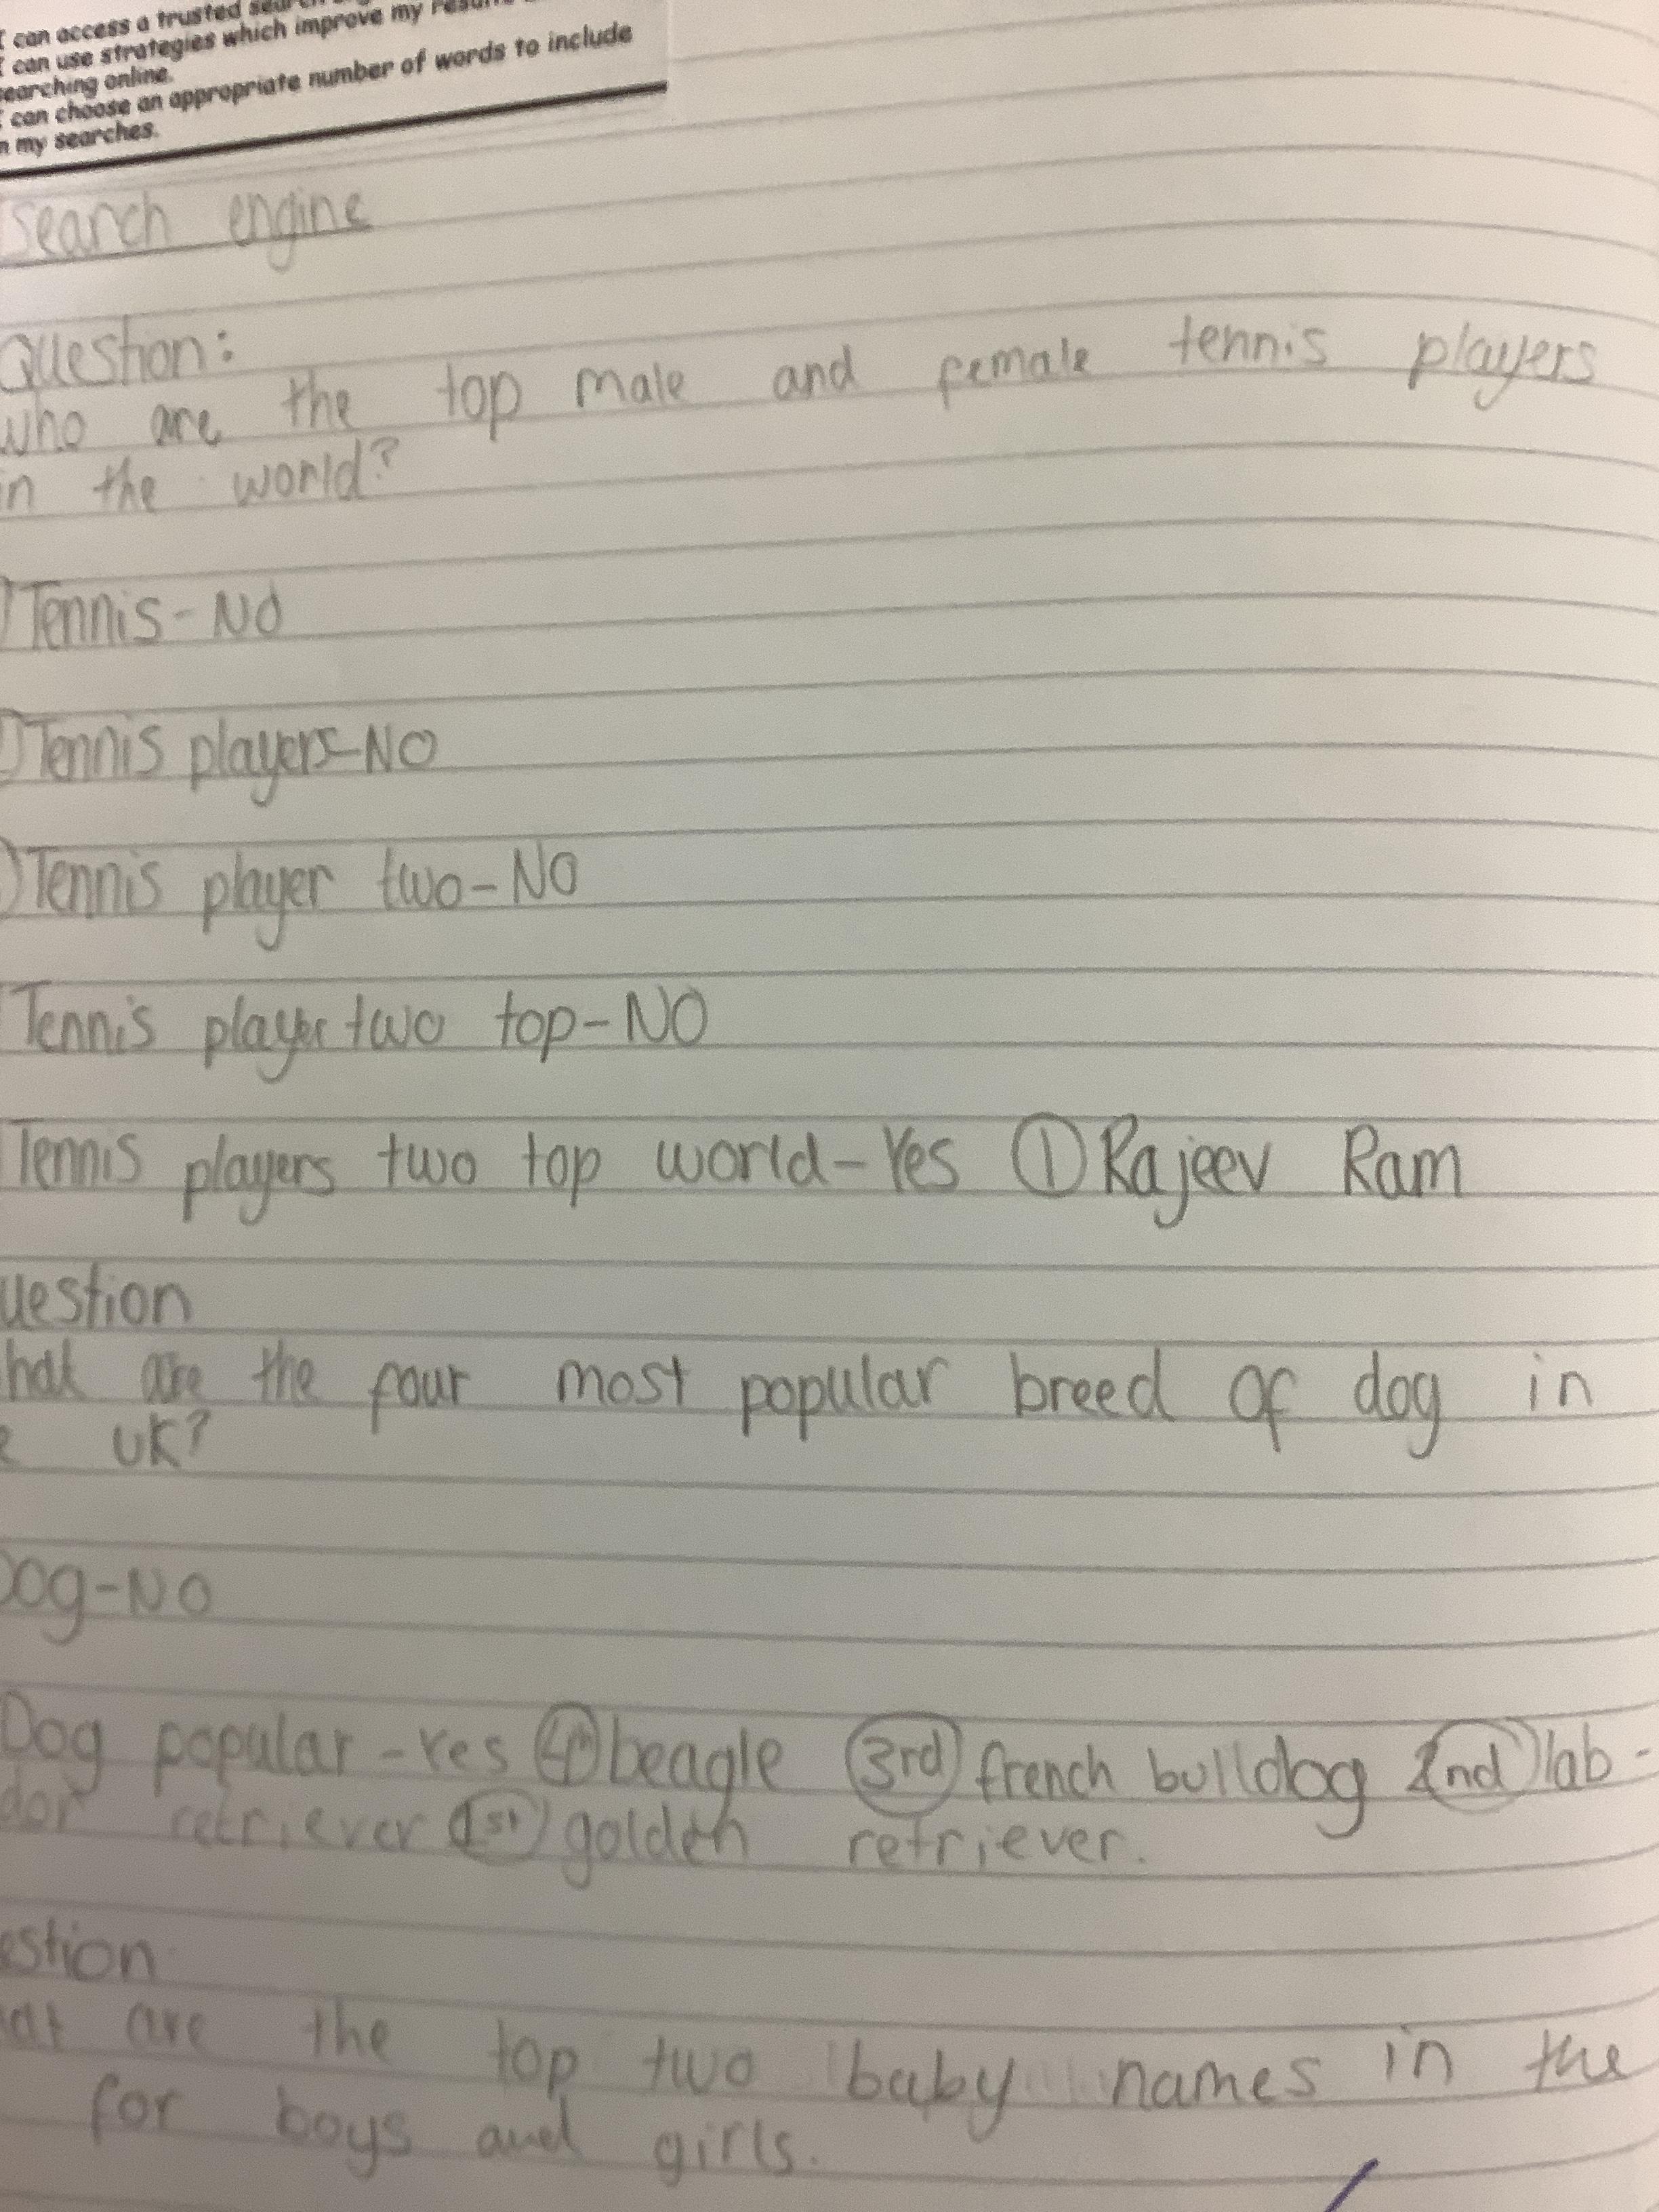 I can access a trusted search
I can use strategies which improve my results
searching online.
I can choose an appropriate number of words to include
n my searches.
search engine
Question:
who are the top male and female tennis players
in the world?
Tennis-No
Tennis players-NO
Tennis player two-NO
Tennis player two top-NO
Tennis players two top world-Yes ① Rajeev Ram
uestion
hat are the four most popular breed of dog in
e UK?
Dog-NO
Dog popular-Yes 4th beagle 3rd french bulldog 2nd lab-
dor retriever 1st golden retriever.
estion
at are the top two baby names in the
for boys and girls.